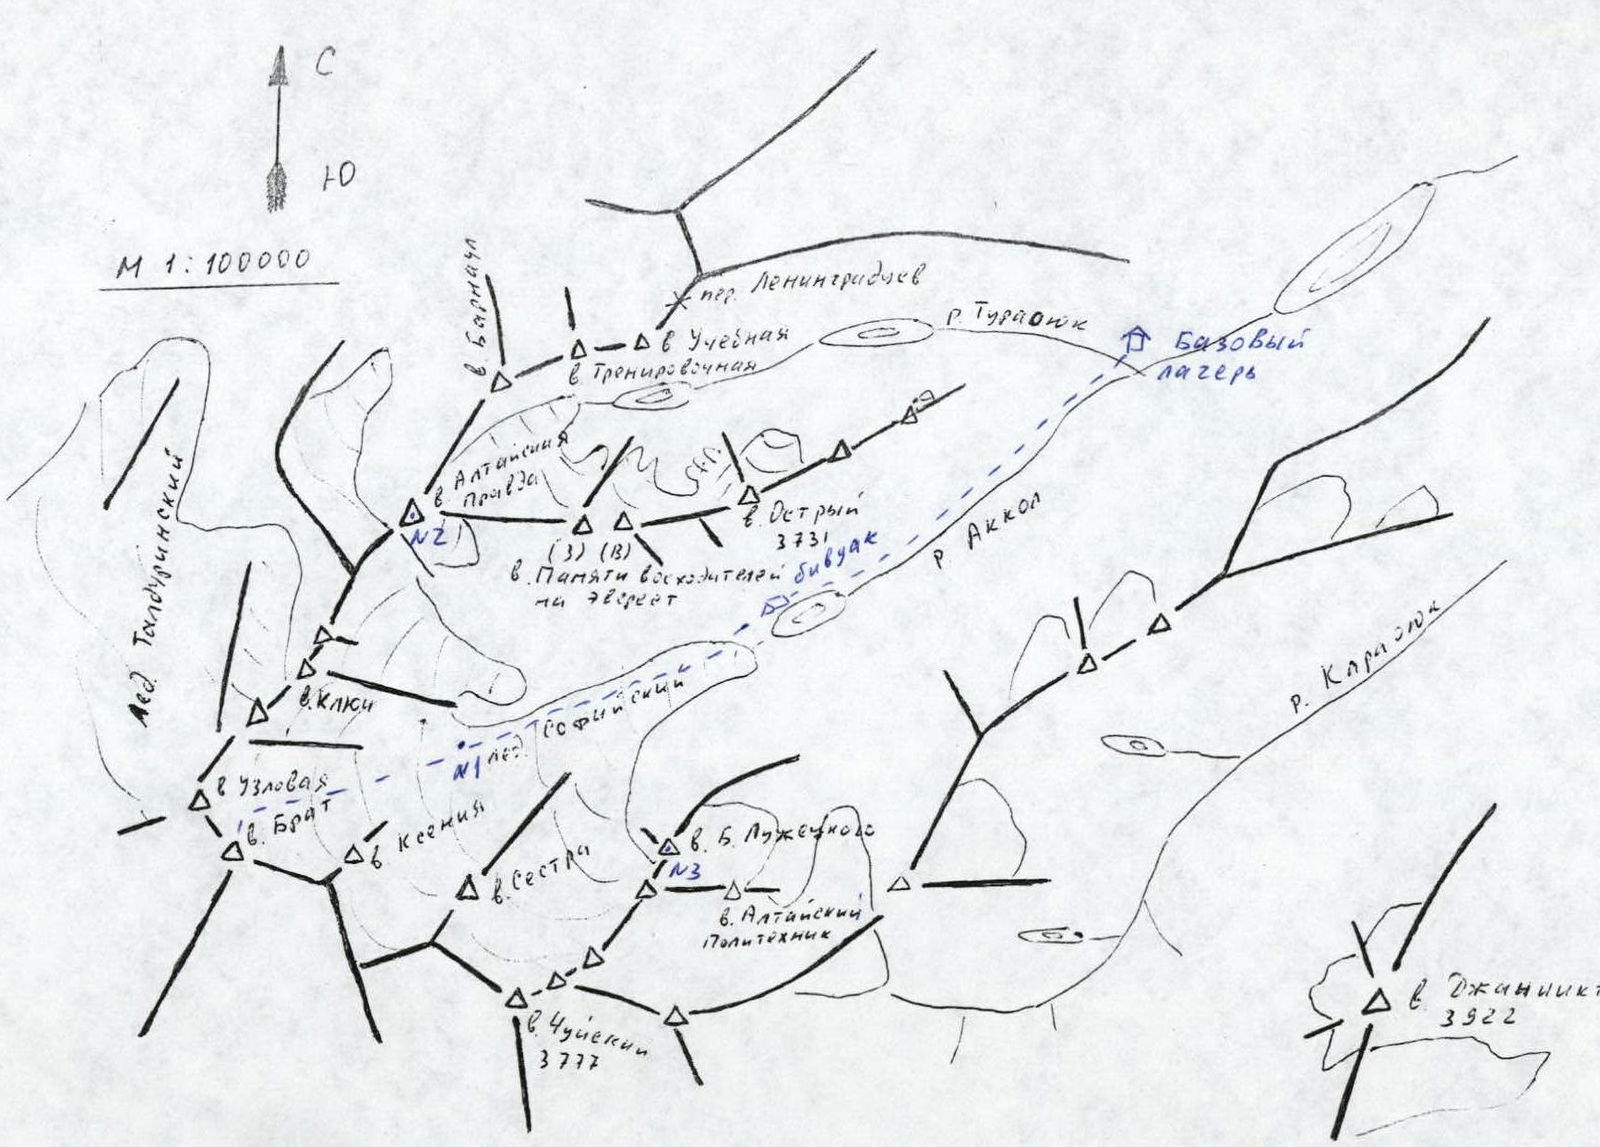 С
Ю
М 1:100000
в. Барнаул
пер. Ленинградцев
р. Тураоюк
в Учебная
в Тренировочная
Базовый
лагерь
в Алтайская
Правда
N2
в. Острый
3731
(З) (В)
в. Памяти восходителей
на Эверест
бивуак
р Аккол
лед. Талдуринский
р. Караоюк
в. Ключ
лед. Софийский
N1
в Узловая
в. Брат
в Ксения
в. Сестра
в. Б. Лужецкого
N3
в. Алтайский
Политехник
в. Чуйский
3777
в. Джаниикт
3922